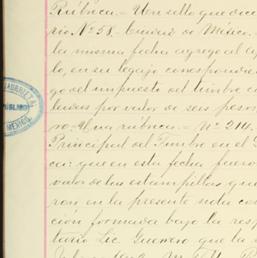 Rúbrica.- Un sello que dice
rio No 58.- Ciudad de México.
la misma fecha agrego al ap
lo, en su legajo correspondie
go del impuesto del timbre c
luras por valor de seis pesos
ro. Una rúbrica.- No 210.
Principal del Timbre en el G
car que en esta fecha fuero
valor de las estampillas que
ron en la presente nota con
ción formada bajo la resp
tario Lic. Guerrero que la
MEXICO.